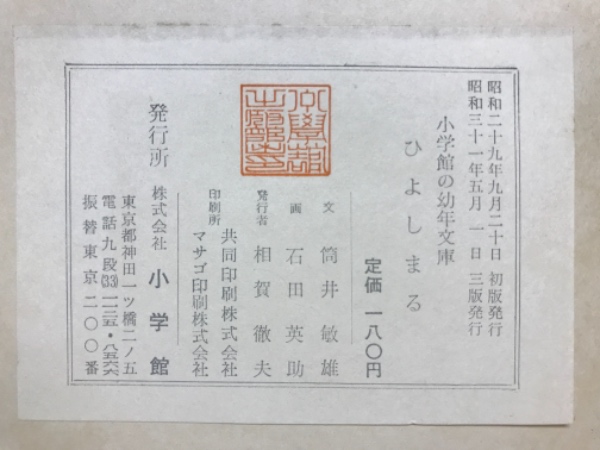 昭和二十九年九月二十日 初版発行
昭和三十一年五月一日 三版発行
小学館の幼年文庫
ひよしまる
定価 一八〇円
文 筒井敏雄
画 石田英助
発行者 相賀徹夫
印刷所 共同印刷株式会社
マサゴ印刷株式会社
発行所 株式会社 小学館
東京都神田一ツ橋二ノ五
電話九段(33)一一二五・八五六六
振替東京二〇〇番